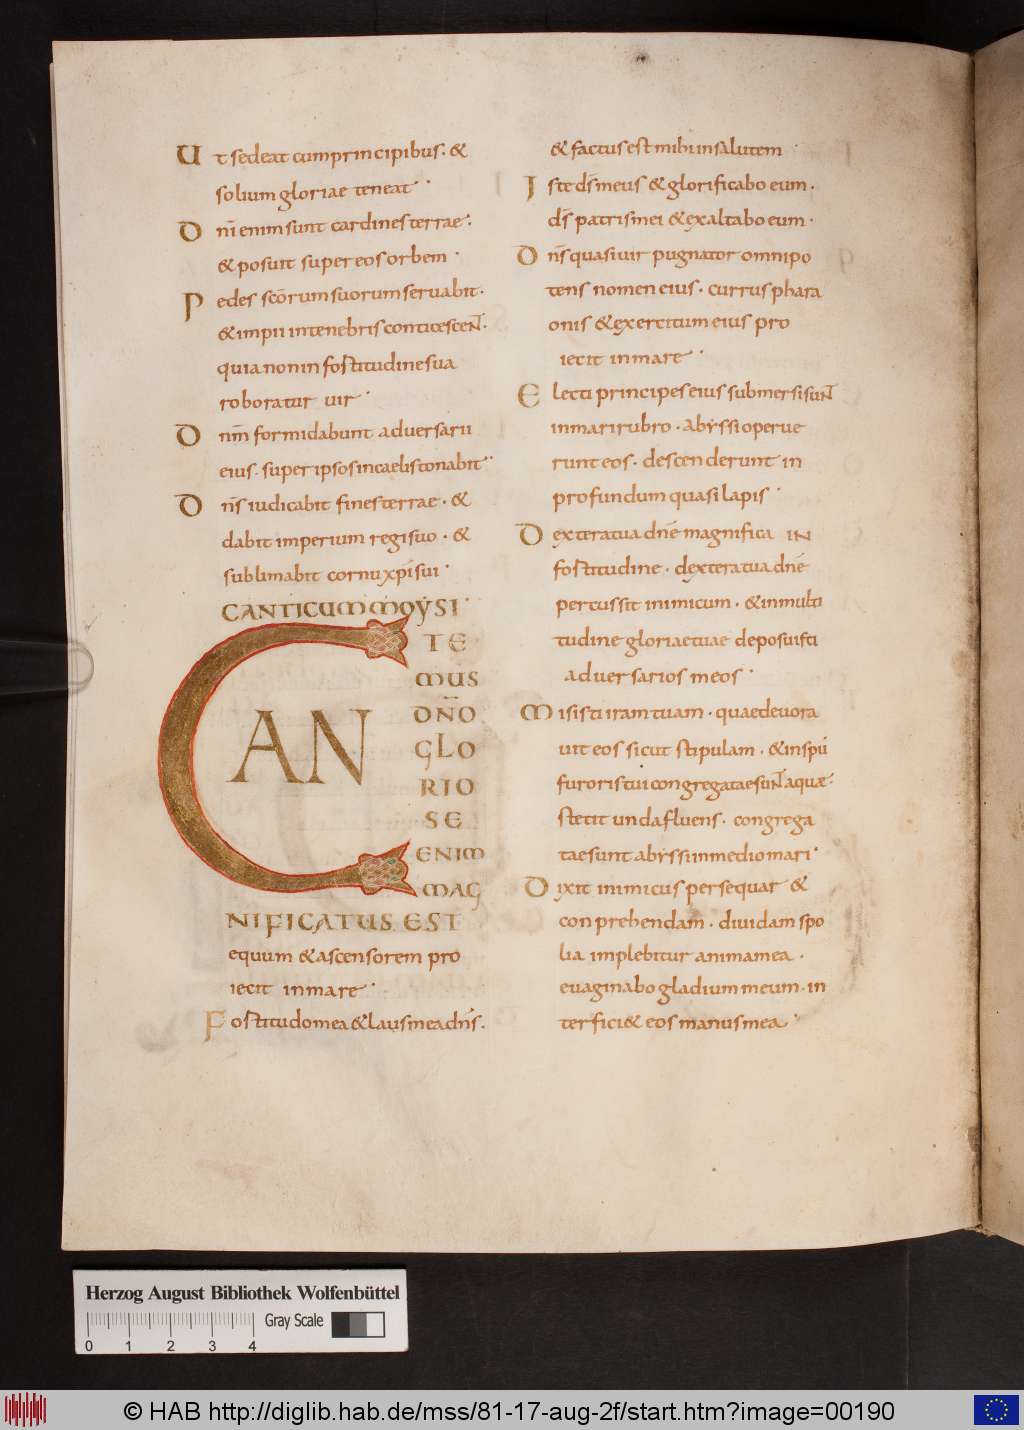 Ut sedeat cum principibus. &
solium gloriae teneat
Dnī enim sunt cardines terrae.
& posuit super eos orbem
Pedes scōrum suorum servabit.
& impii in tenebris conticescent.
quia non in fortitudine sua
roboratur vir
Dnm̄ formidabunt adversarii
eius. super ipsos in caelis tonabit
Dn̄s iudicabit fines terrae. &
dabit imperium regi suo. &
sublimabit cornu xp̄i sui
CANTICUM MOYSI
CAN
TE
MUS
DN̄O
GLO
RIO
SE
ENIM
MAG
NIFICATUS EST
equum & ascensorem pro
iecit in mare
Fortitudo mea & laus mea dn̄s.
& factus est mihi in salutem
Iste dēs meus & glorificabo eum.
dēs patris mei & exaltabo eum.
Dn̄s quasi vir pugnator omnipo
tens nomen eius. currus phara
onis & exercitum eius pro
iecit in mare
Electi principes eius submersi sunt
in mari rubro. abyssi operue
runt eos. descenderunt in
profundum quasi lapis
Dextera tua dn̄e magnifica IN
fortitudine. dextera tua dn̄e
percussit inimicum. & in multi
tudine gloriae tuae deposuisti
adversarios meos
Misisti iram tuam. quae devora
vit eos sicut stipulam. & in spū
furoris tui congregatae sunt aquae.
stetit unda fluens. congrega
tae sunt abyssi in medio mari
Dixit inimicus persequar &
conprehendam. dividam spo
lia implebitur anima mea.
evaginabo gladium meum. in
terfici& eos manus mea
Herzog August Bibliothek Wolfenbüttel
Gray Scale
0 1 2 3 4
© HAB http://diglib.hab.de/mss/81-17-aug-2f/start.htm?image=00190